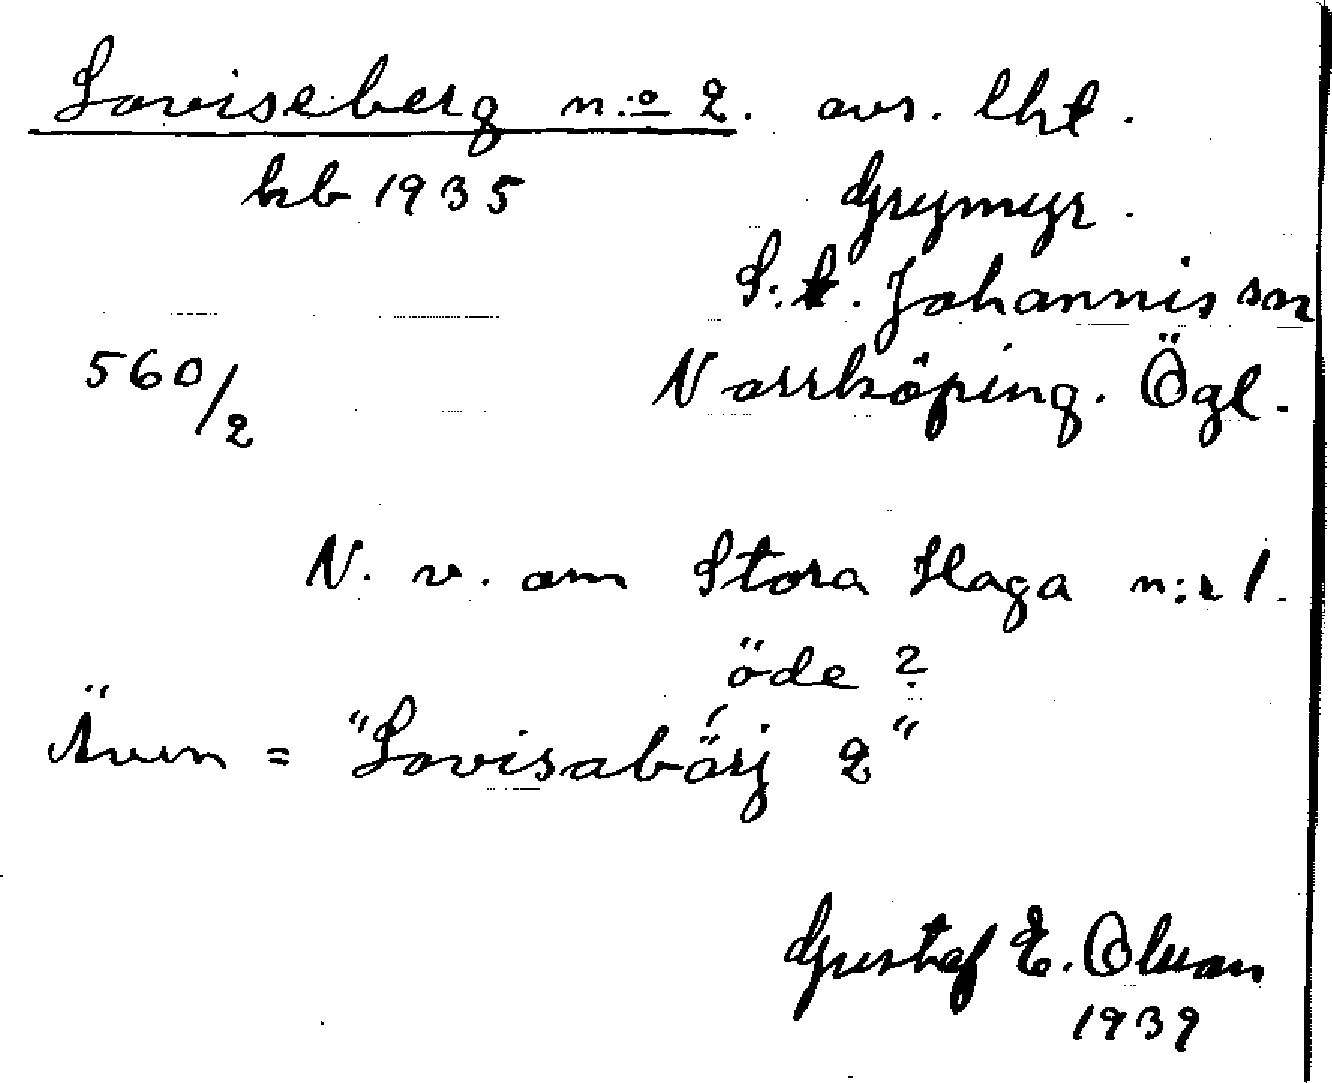 Loviseberg n:o 2. avs. lht.
kb 1935
Grymyr.
S:t. Johannis sn
560/2
Norrköping. Ögl.
N. v. om Stora Haga n:r 1.
öde ?
Även = "Lovisabärj 2"
Gustaf E. Olsson
1939